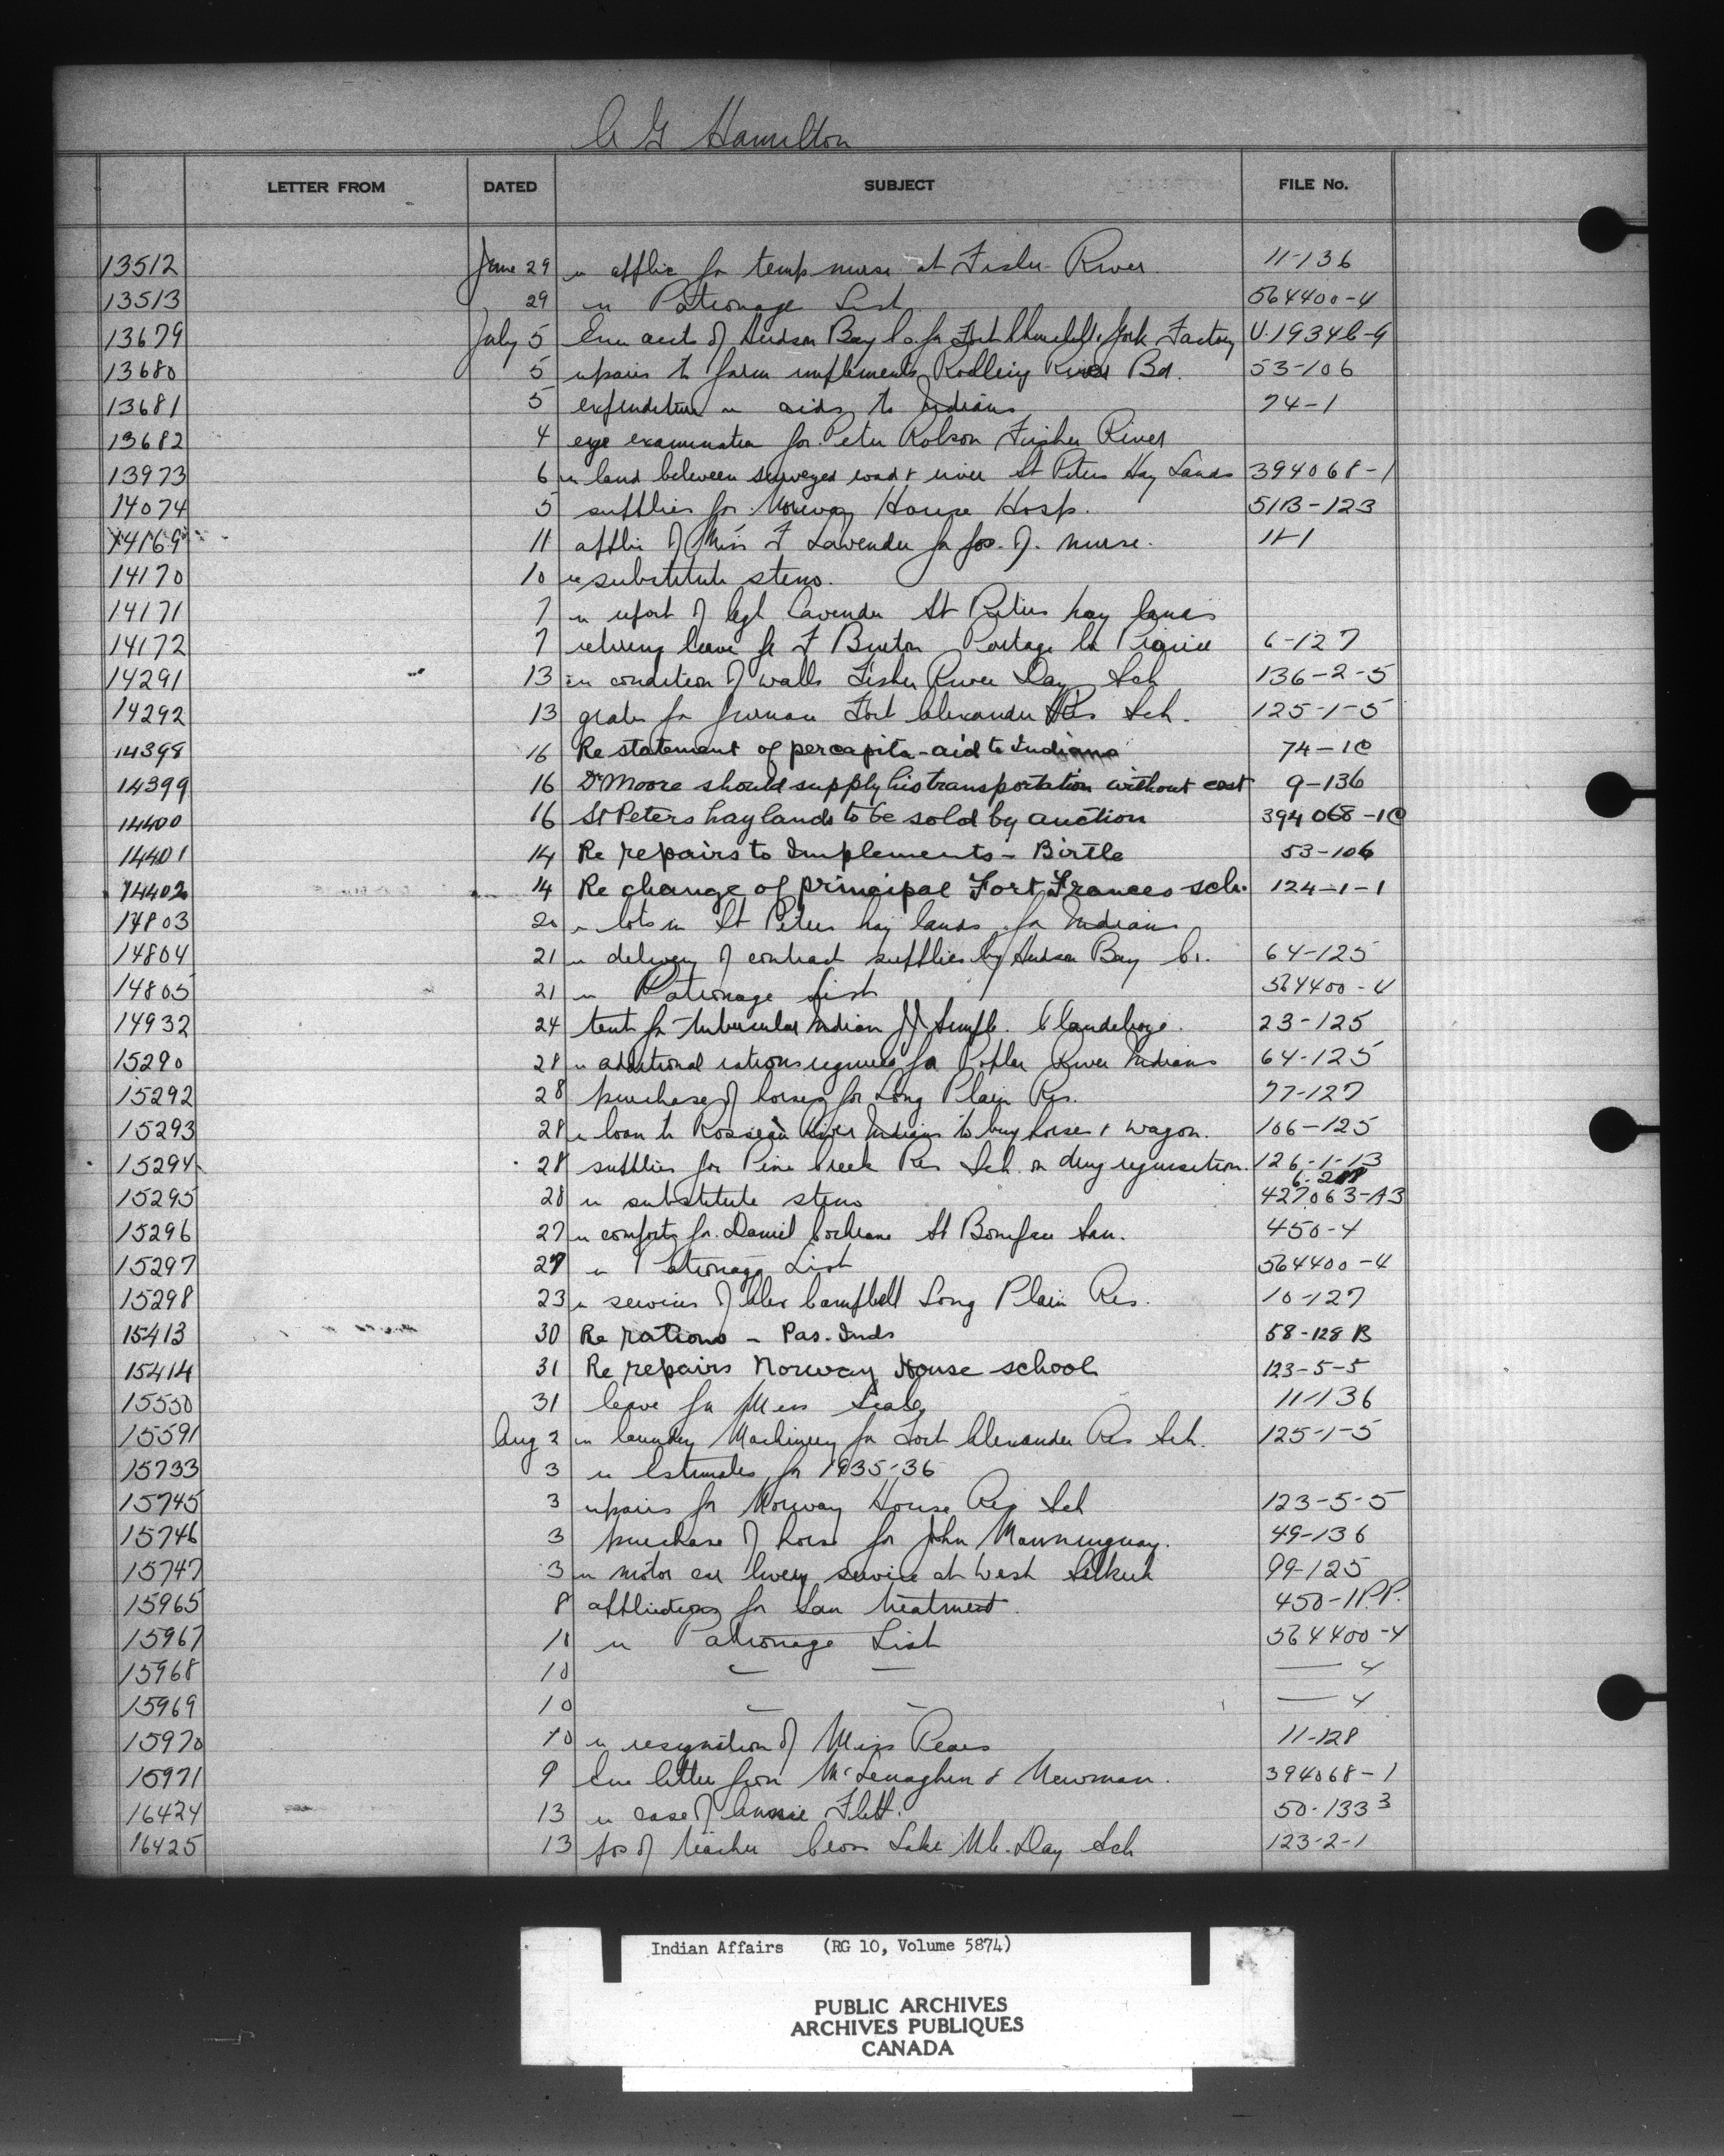 A G Hamilton
LETTER FROM DATED SUBJECT FILE No.
13512 June 29 re applic for temp nurse at Fisher River 11-136
13513 29 re Patronage List 564400-4
13679 July 5 Enc accts of Hudson Bay Co for Fort Churchill & York Factory U.1934
13680 5 repairs to farm implements Rolling River Bd. 53-106
13681 5 expenditure re aids to Indians 74-1
13682 4 eye examination for Peter Robson Fisher River
13973 6 re land between surveyed road & river St Peters Hay Lands 394068-1
14074 5 supplies for Norway House Hosp. 51B-123
14169 11 applic of Miss F Lavender for pos. of nurse. 11-1
14170 10 re substitute steno.
14171 7 re report of Lavender St Peters hay lands
14172 7 retiring leave for F Burton Portage la Prairie 6-127
14291 13 re condition of walls Fisher River Day Sch 136-2-5
14292 13 grates for furnace Fort Alexander Res Sch. 125-1-5
14398 16 Re statement of per capita-aid to Indians 74-1C
14399 16 Dr Moore should supply his transportation without cost 9-136
14400 16 St Peters hay lands to be sold by auction 394068-1C
14401 14 Re repairs to Implements - Birtle 53-106
14402 14 Re change of principal Fort Frances sch. 124-1-1
14803 20 re lots in St Peters hay lands for Indians
14804 21 re delivery of contract supplies by Hudson Bay Co. 64-125
14805 21 re Patronage List 564400-4
14932 24 tent for Tubercular Indian Clandeboye. 23-125
15290 28 re additional rations required for Poplar River Indians 64-125
15292 28 purchase of horses for Long Plain Res. 77-127
15293 28 re loan to Rosseau River Indians to buy horse & wagon. 106-125
15294 28 supplies for Pine Creek Res Sch. on drug requisition. 126-1-13
15295 28 re substitute steno 427063-A3
15296 27 re comforts for Daniel Cochrane St Boniface San. 450-4
15297 27 re Patronage List 564400-4
15298 23 re services of Alex Campbell Long Plain Res. 10-127
15413 30 Re rations - Pas. Inds 58-128 B
15414 31 Re repairs Norway House school 123-5-5
15550 31 leave for Miss 11-136
15591 Aug 2 re laundry Machinery for Fort Alexander Res Sch. 125-1-5
15733 3 re Estimates for 1935-36
15745 3 repairs for Norway House Res Sch 123-5-5
15746 3 purchase of horse for John 49-136
15747 3 re motor car livery service at West Selkirk 99-125
15965 8 applications for San treatment. 450-11P.P.
15967 10 re Patronage List 564400-4
15968 10 — — — 4
15969 10 — — — 4
15970 10 re resignation of Miss 11-128
15971 9 Enc letter from McLenaghen & Newman. 394068-1
16424 13 re case of Flett. 50-133 3
16425 13 pos of teacher Cross Lake Day Sch 123-2-1
Indian Affairs (RG 10, Volume 5874)
PUBLIC ARCHIVES
ARCHIVES PUBLIQUES
CANADA